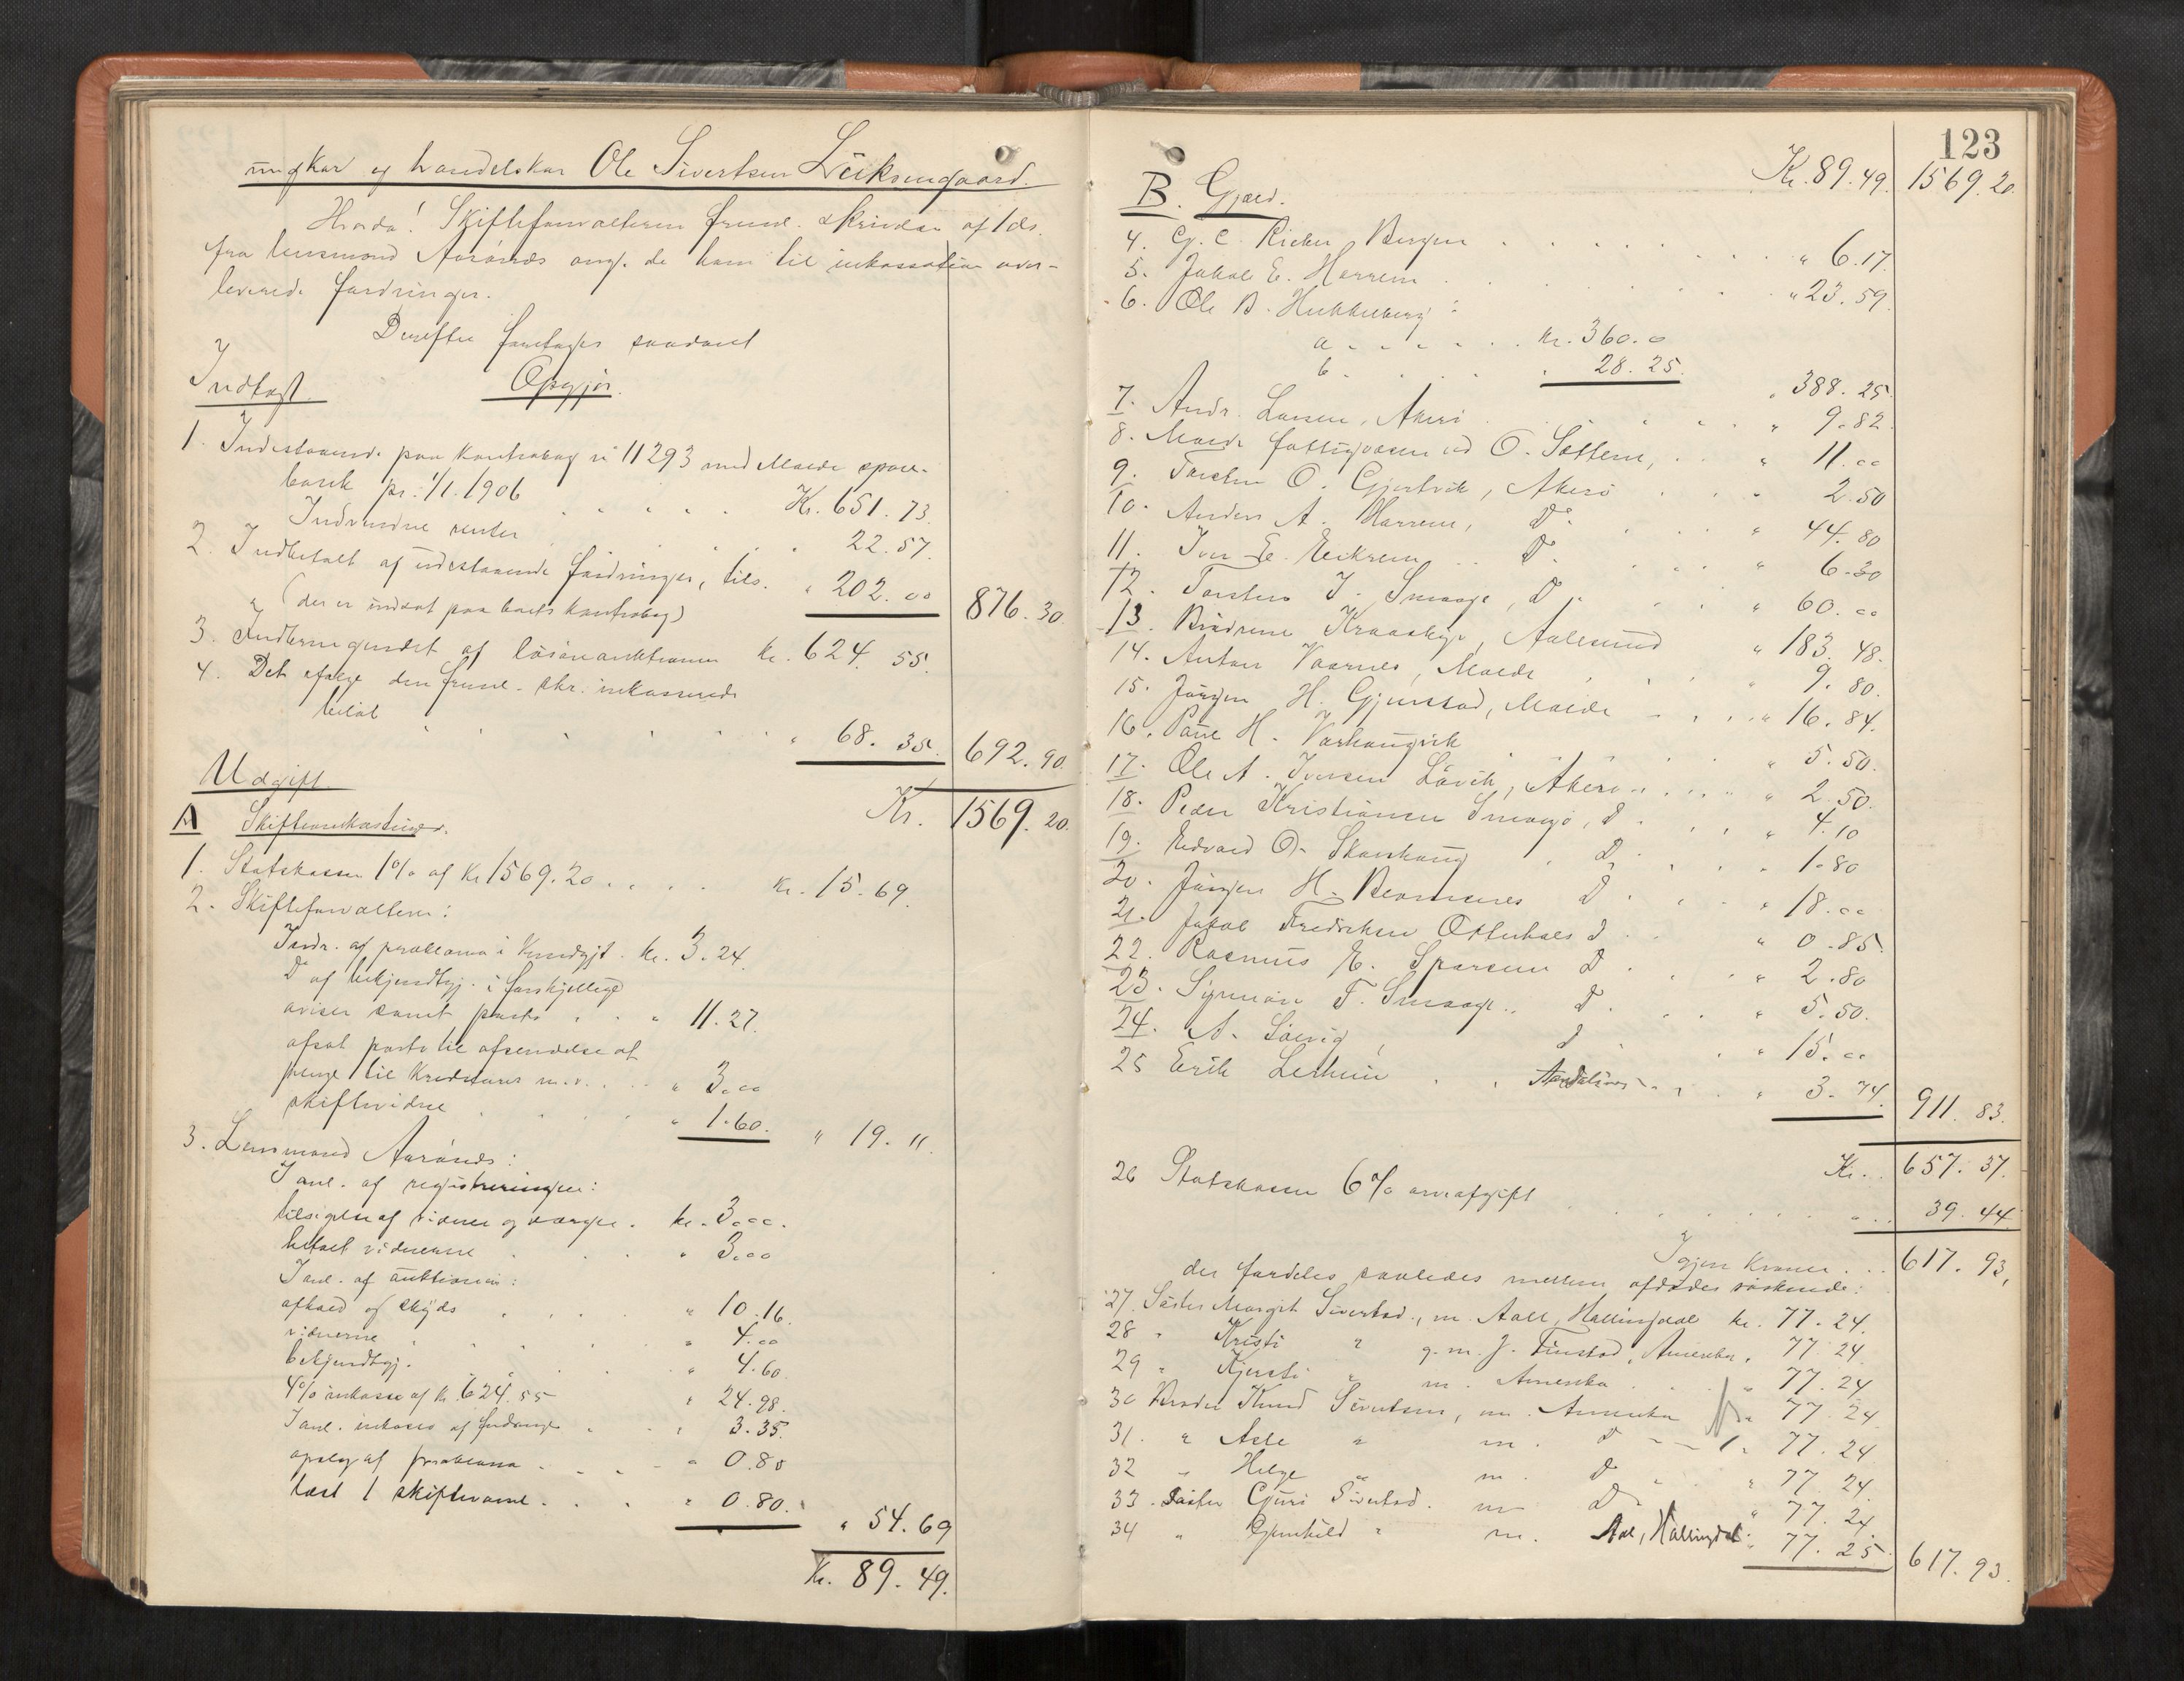 ungkar og handelskar Ole Sivertsen Leiksengaard.
Hvorda! Skifteforvalteren freml. skrivelse af 1 ds.
fra lensmand Aarönæs ang. de ham til inkassation over-
leverede fordringer.
Derefter foretages saadant
Indtægt. Opgjör.
1. Indestaaende paa kontrabog nr 11293 med Molde spare-
bank pr. 1/1.1906 . . . . . Kr. 651.73.
Indvundne renter . . . . . 22.57.
2. Indbetalt af udestaaende fordringer, tils. " 202.00
(der er indsat paa bankkontrabog) 876.30.
3. Indkommet af lösöreauktionen kr. 624.55.
4. Det ifölge den freml. skr. inkasserede
belöb . . . . . . " 68.35. 692.90.
Udgift. Kr. 1569.20.
A Skifteomkostninger.
1. Statskassen 1% af kr 1569.20 . . . . kr. 15.69.
2. Skifteforvalteren:
Indr. af proklama i Kundgjt. kr. 3.24.
Do af bekjendtgj. i forskjellige
aviser samt porto . . " 11.27.
afsat porto til afsendelse af
penge til Kreditorer m.v. . . " 3.00
skiftevidne . . . . " 1.60. " 19.11.
3. Lensmand Aarönæs:
I anl. af registreringen:
tilsigelse af vidner og værger. kr. 3.00.
betalt vidnerne . . . " 3.00
I anl. af auktionen:
afhold og skyds . . . " 10.16.
vidnerne . . . . " 4.00
bekjendtgj. . . . . " 4.60.
4% inkasso af kr. 624.55 " 24.98.
I anl. inkasso af fordringer . . " 3.35.
opslag af proklama . . . " 0.80
læst 1 skiftevarsel . . . " 0.80. " 54.69
Kr. 89.49.
123
Kr. 89.49. 1569.20.
B. Gjæld.
4. G. C. Rieber Bergen . . . . . . " 6.17.
5. Jakob E. Harrem . . . . . " 23.59.
6. Ole B. Hukkelberg:
a . . . . . kr. 360.0
b . . . . " 28.25. " 388.25.
7. Andr. Larsen, Akerö . . . . " 9.82.
8. Molde fattigvæsen ved O. Sættem, . . " 11.00
9. Torsten O. Gjertvik, Akerö . . . 2.50
10. Anders A. Harrem, Do. . . . " 44.80
11. Iver E. Eikrem . . Do. . . . " 6.30
12. Torsten J. Smaage, Do . . . " 60.00
13. Brödrene Kraaskye, Aalesund " 183.48.
14. Anton Vaarnes, Molde . . . " 9.80.
15. Jörgen H. Gjerstad, Molde . . . " 16.84.
16. Paul H. Varhaugvik . . . . " 5.50.
17. Ole A. Iversen Lövik, Akerö . . . . " 2.50.
18. Peder Kristiansen Smaage, Do . . . " 4.10
19. Edvard O. Skarshaug . Do . . . " 1.80
20. Jörgen H. Beormenes Do . . . " 18.00
21. Jakob Fredriksen Otterhals Do . . " 0.85.
22. Rasmus E. Sporsem Do . . . " 2.80
23. Symon T. Smaage . . Do . . . " 5.50.
24. A. Solvig, Do . . . " 15.00
25 Erik Lerheim . . Aandalsnes . . . " 3.74. 911.83.
Kr. . 657.37.
26 Statskassen 6% arveafgift . . . . . . . " . . 39.44.
Igjen kroner . . . 617.93,
der fordeles saaledes mellem afdödes söskende:
27. Söster Margit Sivertsd., m. Aall, Hallingdal kr. 77.24.
28 " Kristi " g. m. J. Finstad, Amerika, 77.24.
29 " Kjersti " m. Amerika . . . " 77.24.
30 Broder Knud Sivertsen, m. Amerika " 77.24.
31. " Asle " m. Do " 77.24
32 " Helge " m. Do . " 77.24.
33. Söster Guri Sivertsd. m. Do . " 77.24.
34 " Gunhild " m. Aal, Hallingdal. " 77.25. 617.93.